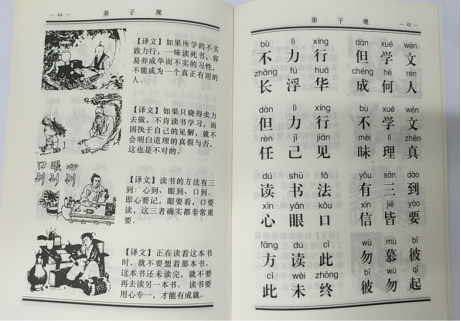 弟 子 规
【译文】如果所学的不实
践力行，一味读死书，容
易养成华而不实的习性，
不能成为一个真正有用的
人。
【译文】如果只晓得卖力
去做，不肯读书学习，而
固执于自己的见解，就不
会明白道理的真假与否，
这也是不对的。
【译文】读书的方法有三
到：心到、眼到、口到。
即心要记，眼要看，口要
读，这三者确实都非常重
要。
【译文】正在读着这本书
时，就不要想着那本书，
这本书还未读完，就不要
再去读另一本书。读书要
用心专一，才能有成就。
弟 子 规
bù lì xíng dàn xué wén
不 力 行 但 学 文
zhǎng fú huá chéng hé rén
长 浮 华 成 何 人
dàn lì xíng bù xué wén
但 力 行 不 学 文
rèn jǐ jiàn mèi lǐ zhēn
任 己 见 昧 理 真
dú shū fǎ yǒu sān dào
读 书 法 有 三 到
xīn yǎn kǒu xìn jiē yào
心 眼 口 信 皆 要
fāng dú cǐ wù mù bǐ
方 读 此 勿 慕 彼
cǐ wèi zhōng bǐ wù qǐ
此 未 终 彼 勿 起